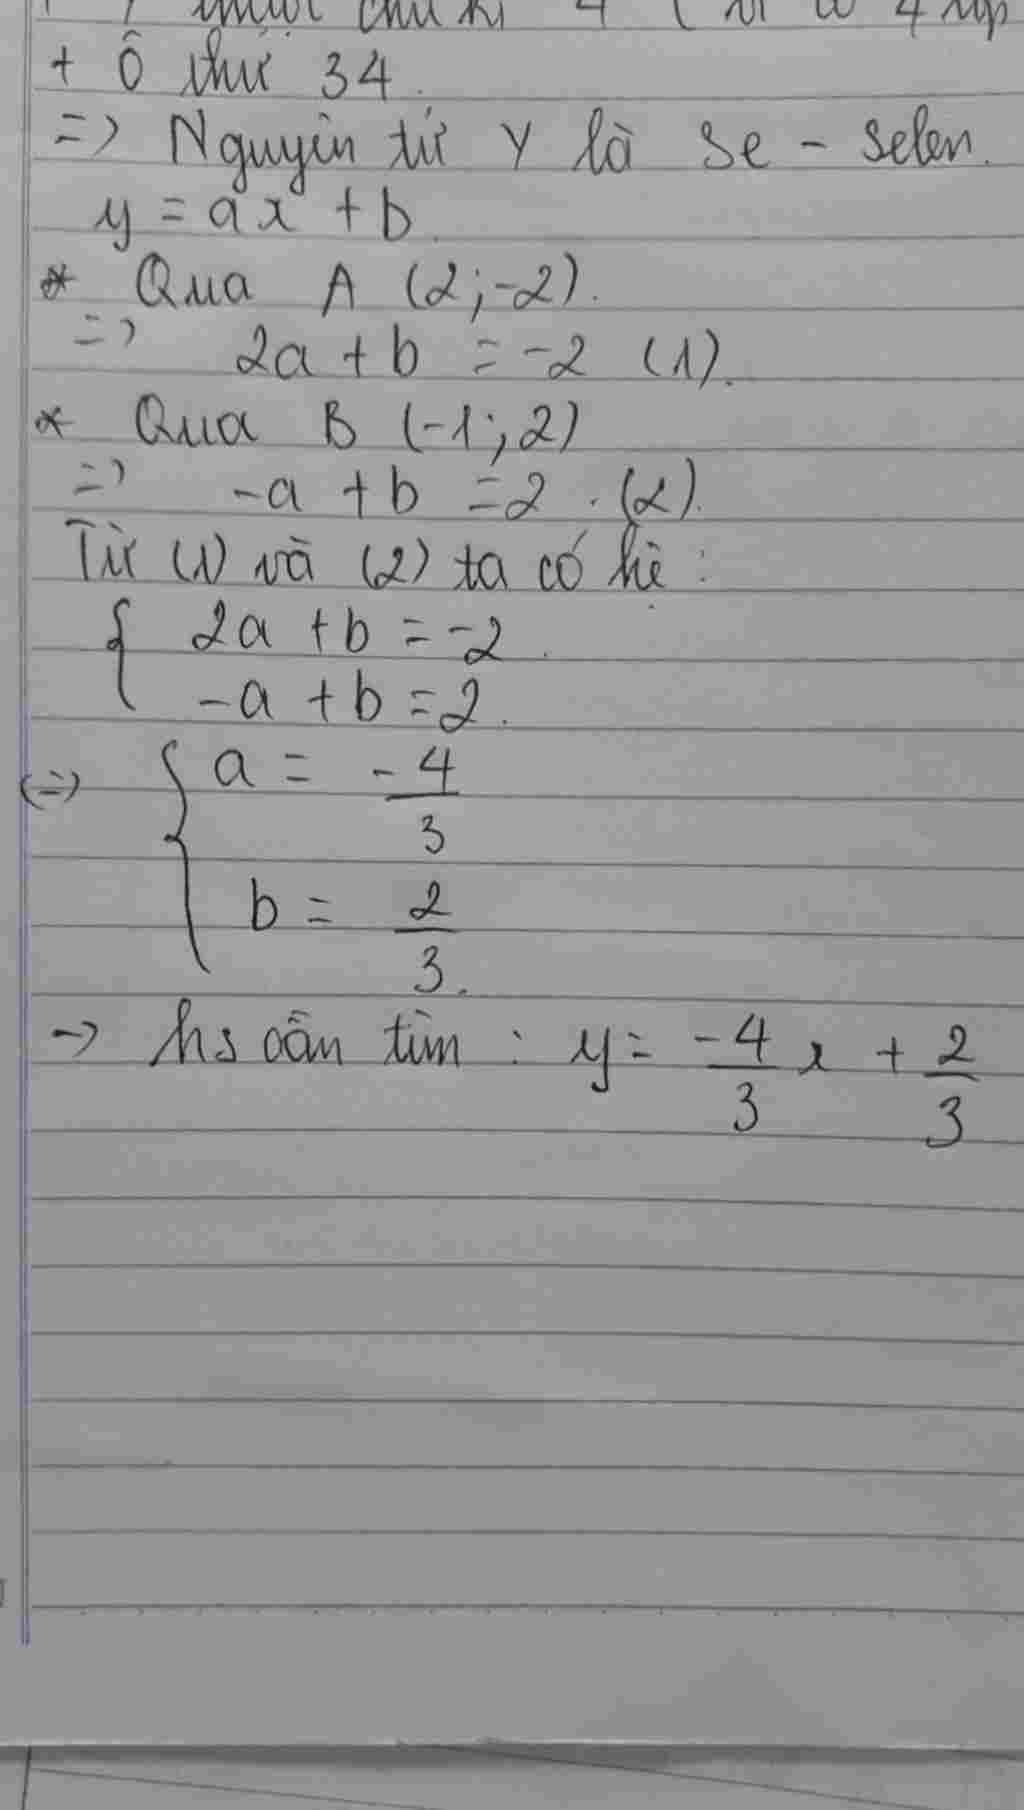 thuộc chu kì 4 ( vì có 4 lớp
+ Ô thứ 34.
=> Nguyên tử Y là Se - Selen.
y = ax + b.
* Qua A (2; -2).
=> 2a + b = -2 (1).
* Qua B (-1; 2)
=> -a + b = 2. (2).
Từ (1) và (2) ta có hệ:
{ 2a + b = -2.
-a + b = 2.
(=) { a = -4/3
b = 2/3.
-> hs cần tìm : y = -4/3 x + 2/3